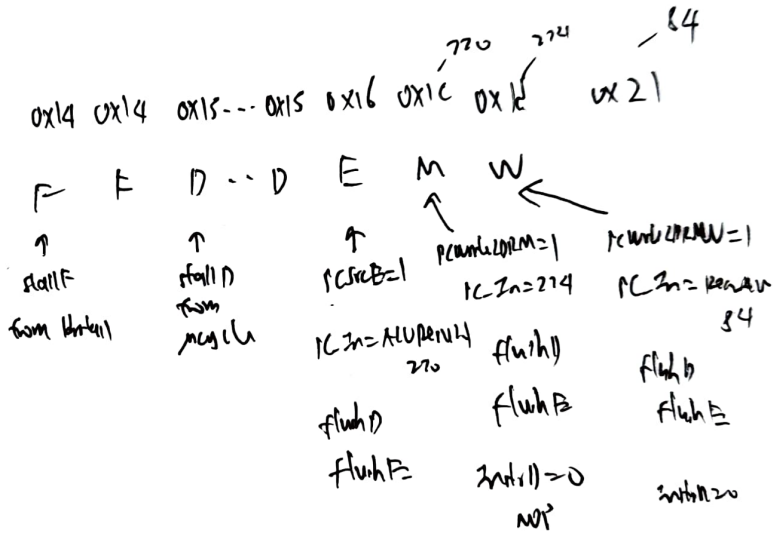 220 224 84
0x14 0x14 0x15 ... 0x15 0x16 0x1C 0x1d 0x21
F F D .. D E M W
stallF
from
stallD
from
mcycle
PCSrcE=1
PC_In=ALUResultE
220
flushD
flushE
PCWriteLDRM=1
PC_In=224
flushD
flushE
InstrD=0
NOP
=1
PC_In=
84
flushD
flushE
InstrD=0